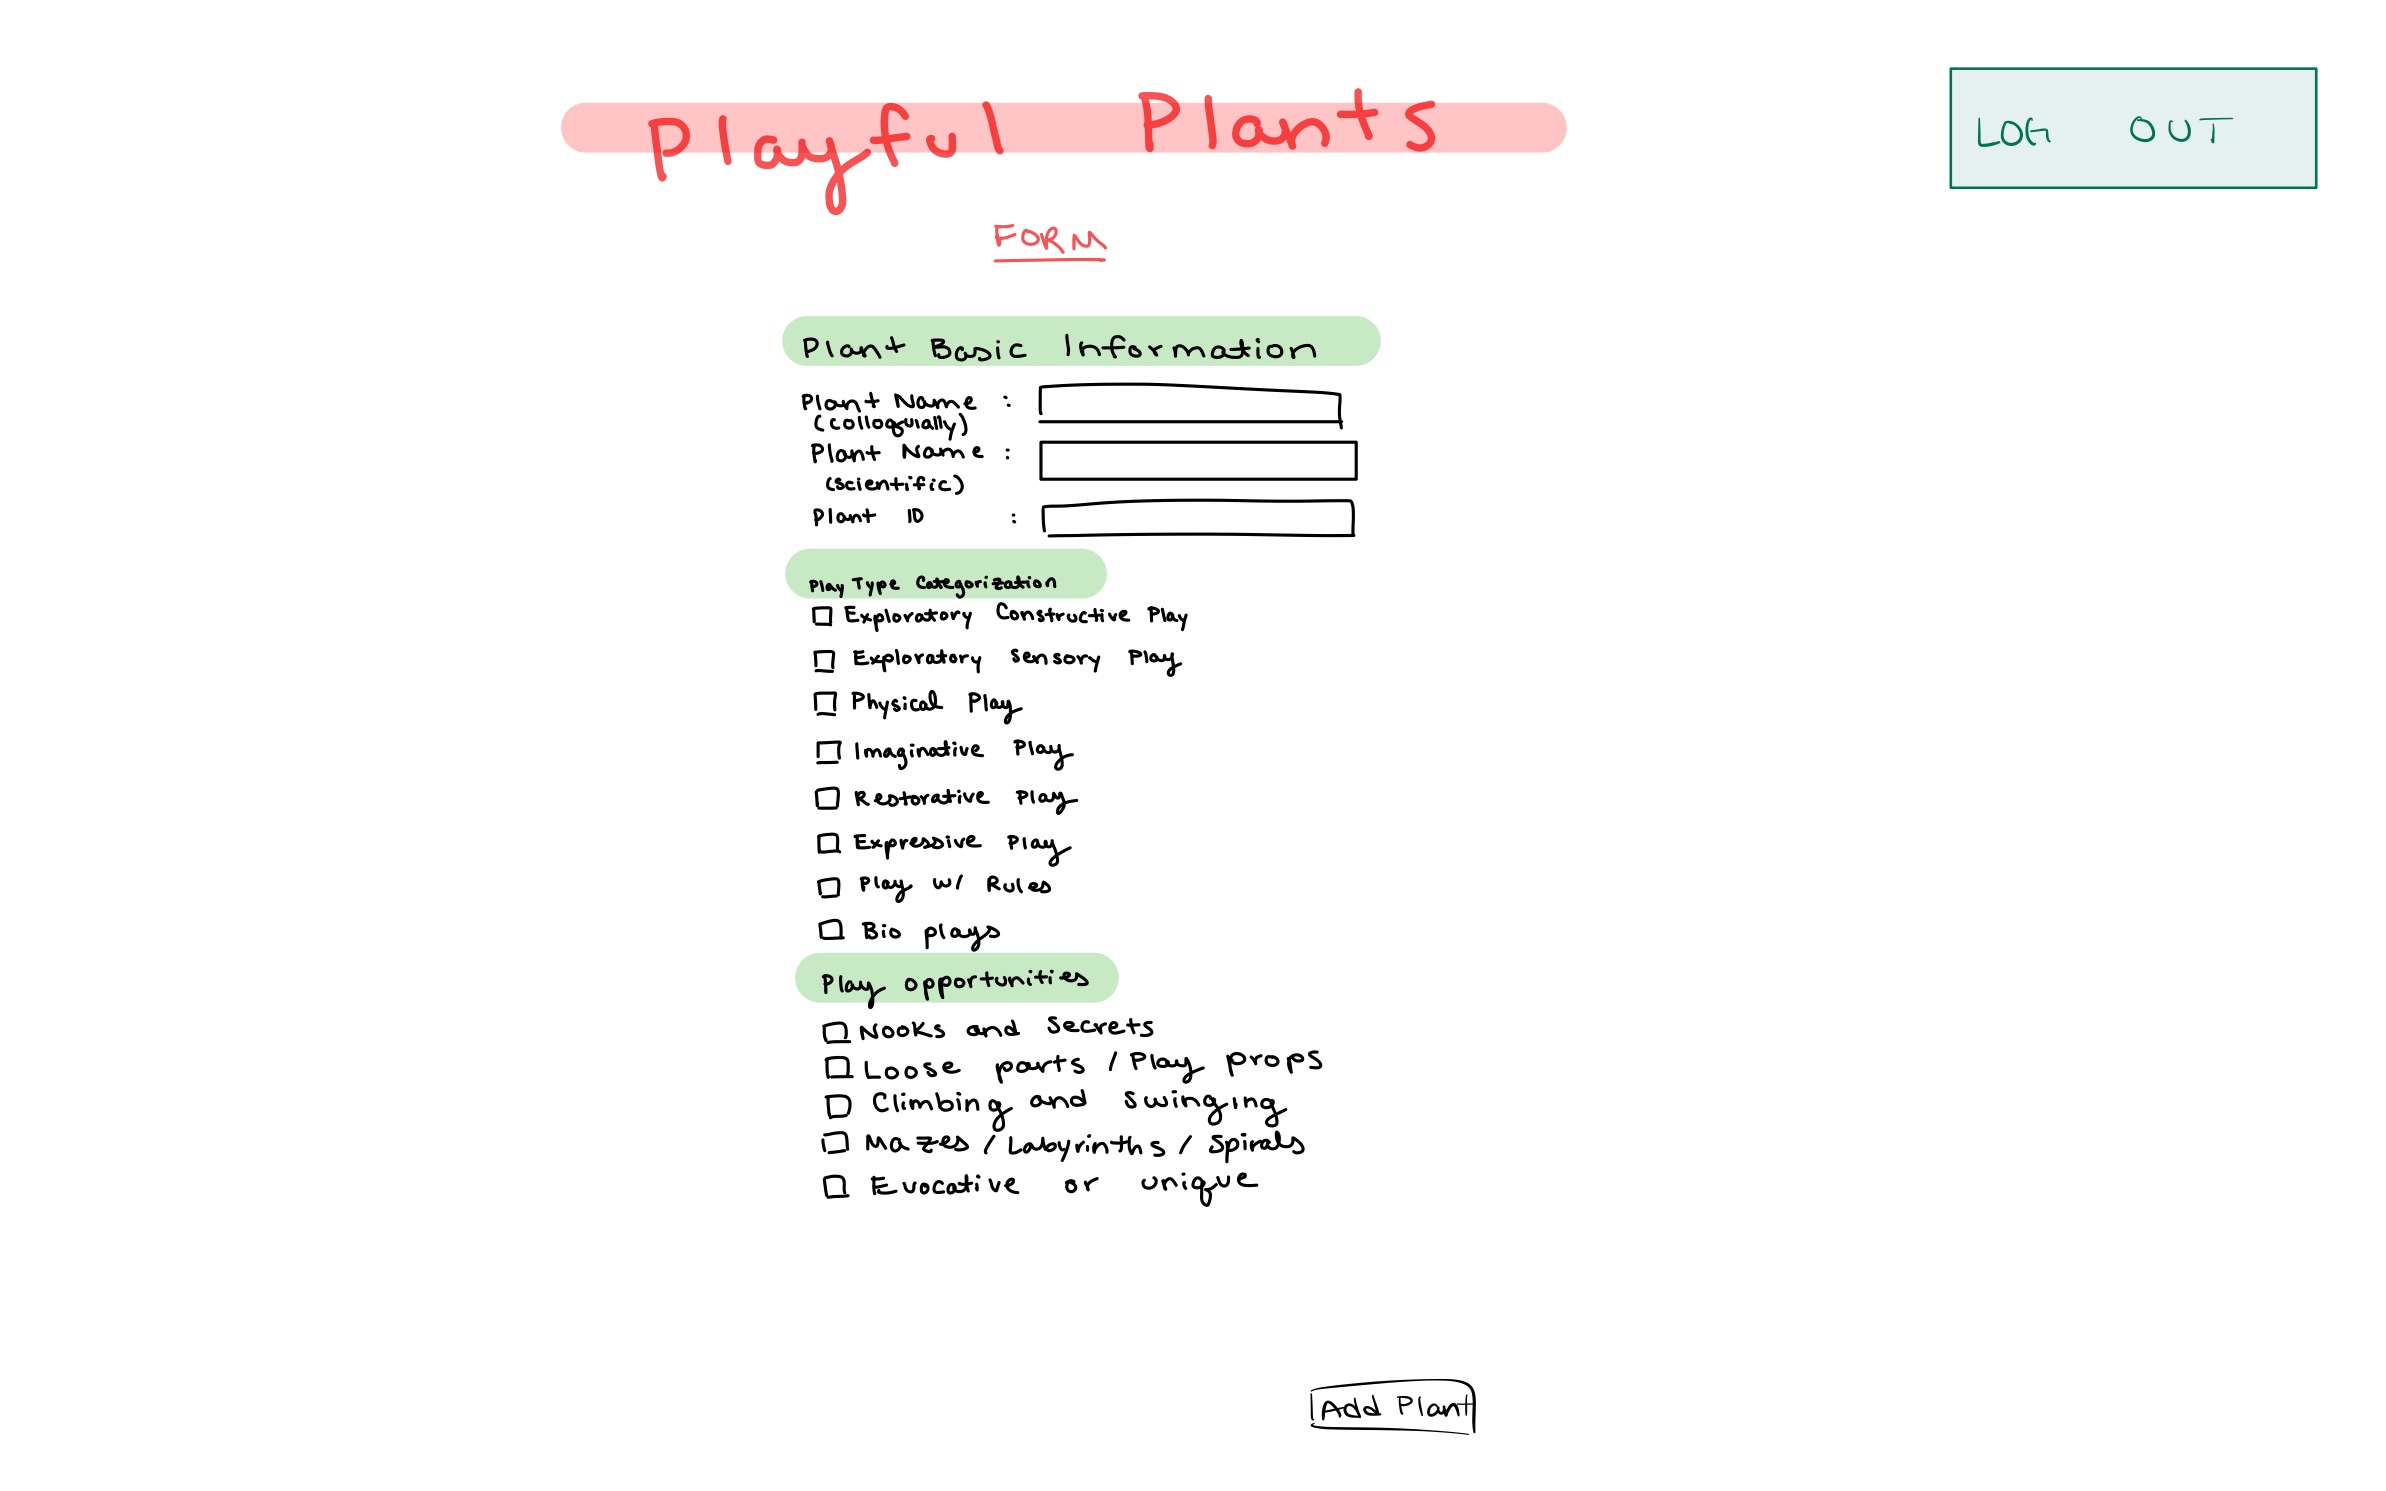 Playful Plants
LOG OUT
FORM
Plant Basic Information
Plant Name :
(colloquially)
Plant Name :
(scientific)
Plant ID :
Play Type Categorization
Exploratory Constructive Play
Exploratory Sensory Play
Physical Play
Imaginative Play
Restorative Play
Expressive Play
Play w/ Rules
Bio plays
Play opportunities
Nooks and Secrets
Loose parts / Play props
Climbing and swinging
Mazes / Labyrinths / Spirals
Evocative or unique
Add Plant